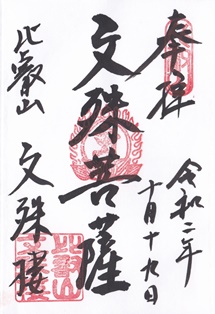 奉拝
令和二年
十月十九日
文殊菩薩
比叡山
文殊樓